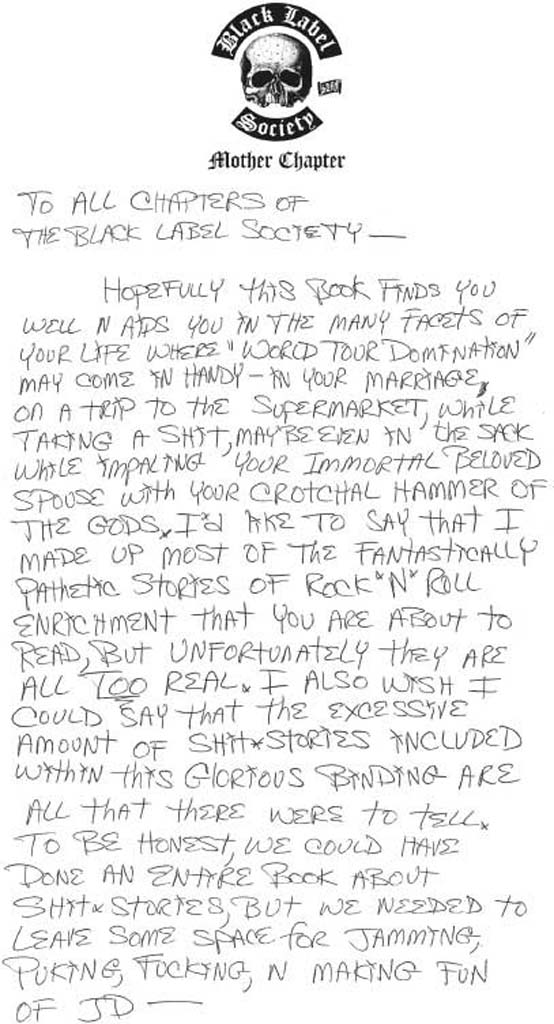 Black Label
Society
Mother Chapter
TO ALL CHAPTERS OF
THE BLACK LABEL SOCIETY —
HOPEFULLY THIS BOOK FINDS YOU
WELL N AIDS YOU IN THE MANY FACETS OF
YOUR LIFE WHERE "WORLD TOUR DOMINATION"
MAY COME IN HANDY – IN YOUR MARRIAGE,
ON A TRIP TO THE SUPERMARKET, WHILE
TAKING A SHIT, MAYBE EVEN IN THE SACK
WHILE IMPALING YOUR IMMORTAL BELOVED
SPOUSE WITH YOUR CROTCHAL HAMMER OF
THE GODS. I'd LIKE TO SAY THAT I
MADE UP MOST OF THE FANTASTICALLY
PATHETIC STORIES OF ROCK "N" ROLL
ENRICHMENT THAT YOU ARE ABOUT TO
READ, BUT UNFORTUNATELY THEY ARE
ALL TOO REAL. I ALSO WISH I
COULD SAY THAT THE EXCESSIVE
AMOUNT OF SHIT*STORIES INCLUDED
WITHIN THIS GLORIOUS BINDING ARE
ALL THAT THERE WERE TO TELL.
TO BE HONEST, WE COULD HAVE
DONE AN ENTIRE BOOK ABOUT
SHIT*STORIES, BUT WE NEEDED TO
LEAVE SOME SPACE FOR JAMMING,
PUKING, FUCKING, N MAKING FUN
OF JD —